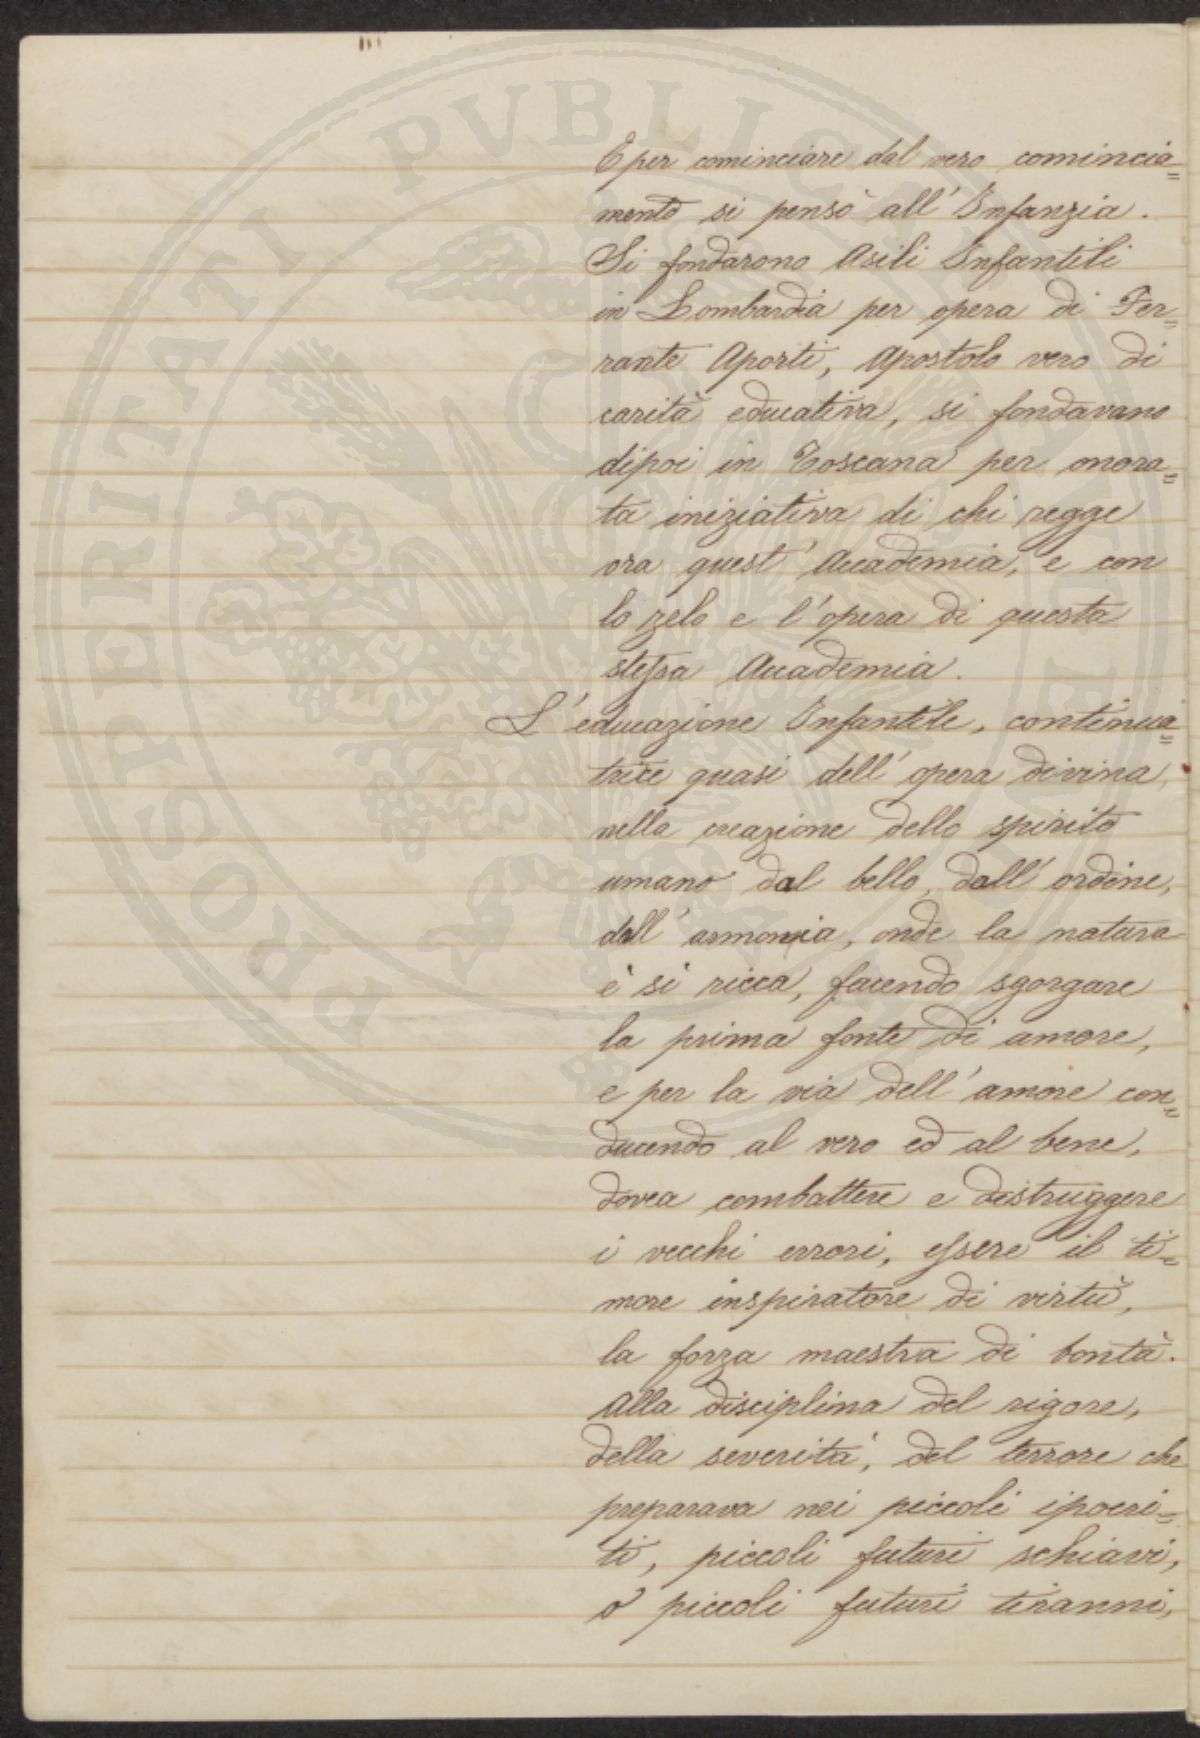 E per cominciare dal vero comincia=
mento si pensò all'Infanzia.
Si fondarono Asili Infantili
in Lombardia per opera di Fer=
rante Aporti, Apostolo vero di
carità educativa, si fondavano
dipoi in Toscana per onora=
ta iniziativa di chi regge
ora quest'Accademia, e con
lo zelo e l'opera di questa
stessa Accademia.
L'educazione Infantile, continua=
trice quasi dell'opera divina,
nella creazione dello spirito
umano dal bello, dall'ordine,
dall'armonia, onde la natura
è sì ricca, facendo sgorgare
la prima fonte di amore,
e per la via dell'amore con=
ducendo al vero ed al bene,
dovea combattere e distruggere
i vecchi errori, essere il ti=
more inspiratore di virtù,
la forza maestra di bontà.
Alla disciplina del rigore,
della severità, del terrore che
preparava nei piccoli ipocri=
ti, piccoli futuri schiavi,
o piccoli futuri tiranni,
PROSPERITATI PVBLICAE